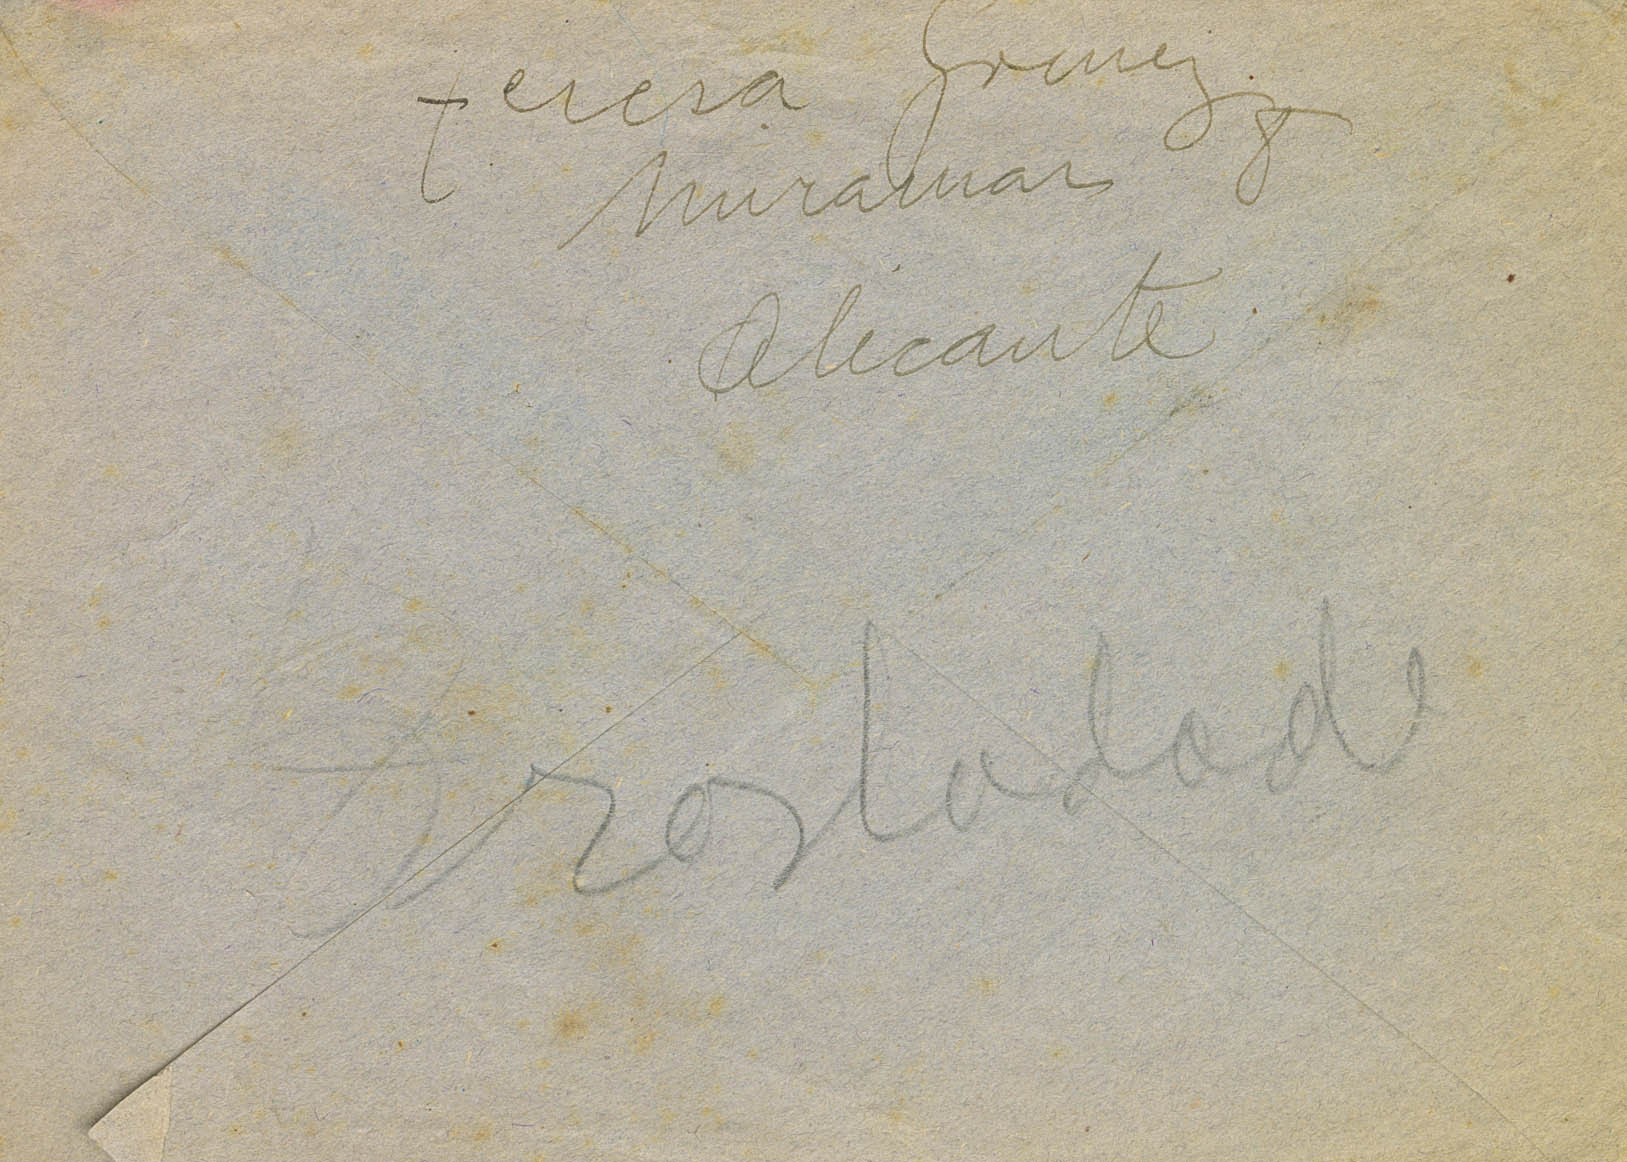 teresa Gomez
Miramar 8
Alicante
Trasladada